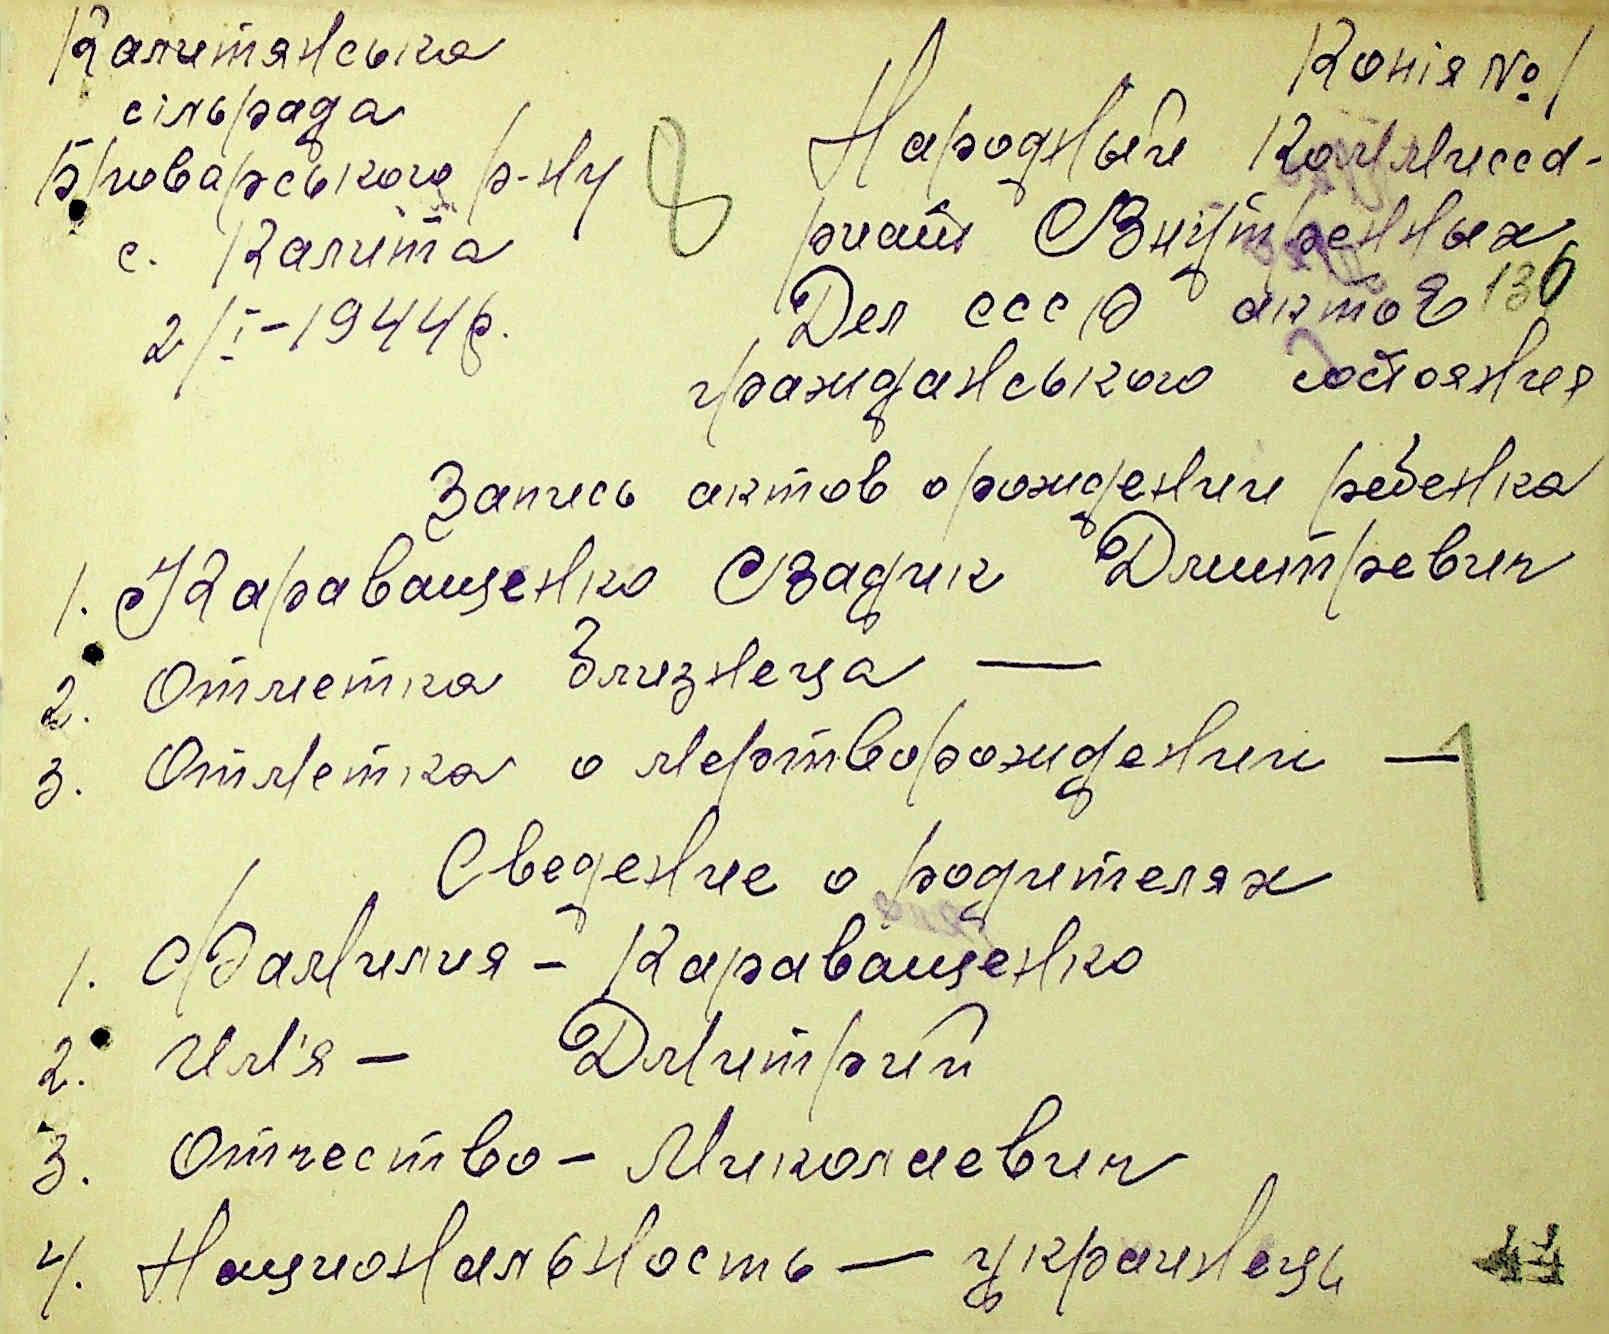 Калитянська
сільрада
Броварського р-ну
с. Калита
2/I-1944 р.
8
Копія № 1
Народный Коммисса-
риат Внутренных
Дел СССР актов
гражиданського состояния
136
Запись актов о рождении ребенка
1. Караващенко Вадик Дмитревич
2. Отметка близнеца —
3. Отметка о мертворождении —
1
Сведение о родителях
1. Фамилия - Караващенко
2. Им'я - Дмитрий
3. Отчество - Миколаевич
4. Национальность - украинець
77